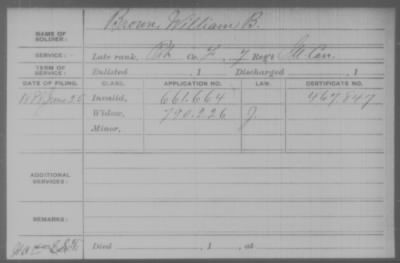 NAME OF SOLDIER: Brown, William B.
SERVICE: Late rank, Co. F, 7 Reg't Cav.
TERM OF SERVICE: Enlisted , 1 Discharged , 1
DATE OF FILING. CLASS. APPLICATION NO. LAW. CERTIFICATE NO.
Invalid, 661.664 467.847
Widow, 790.226 J.
Minor,
ADDITIONAL SERVICES:
REMARKS:
Died , 1 , at